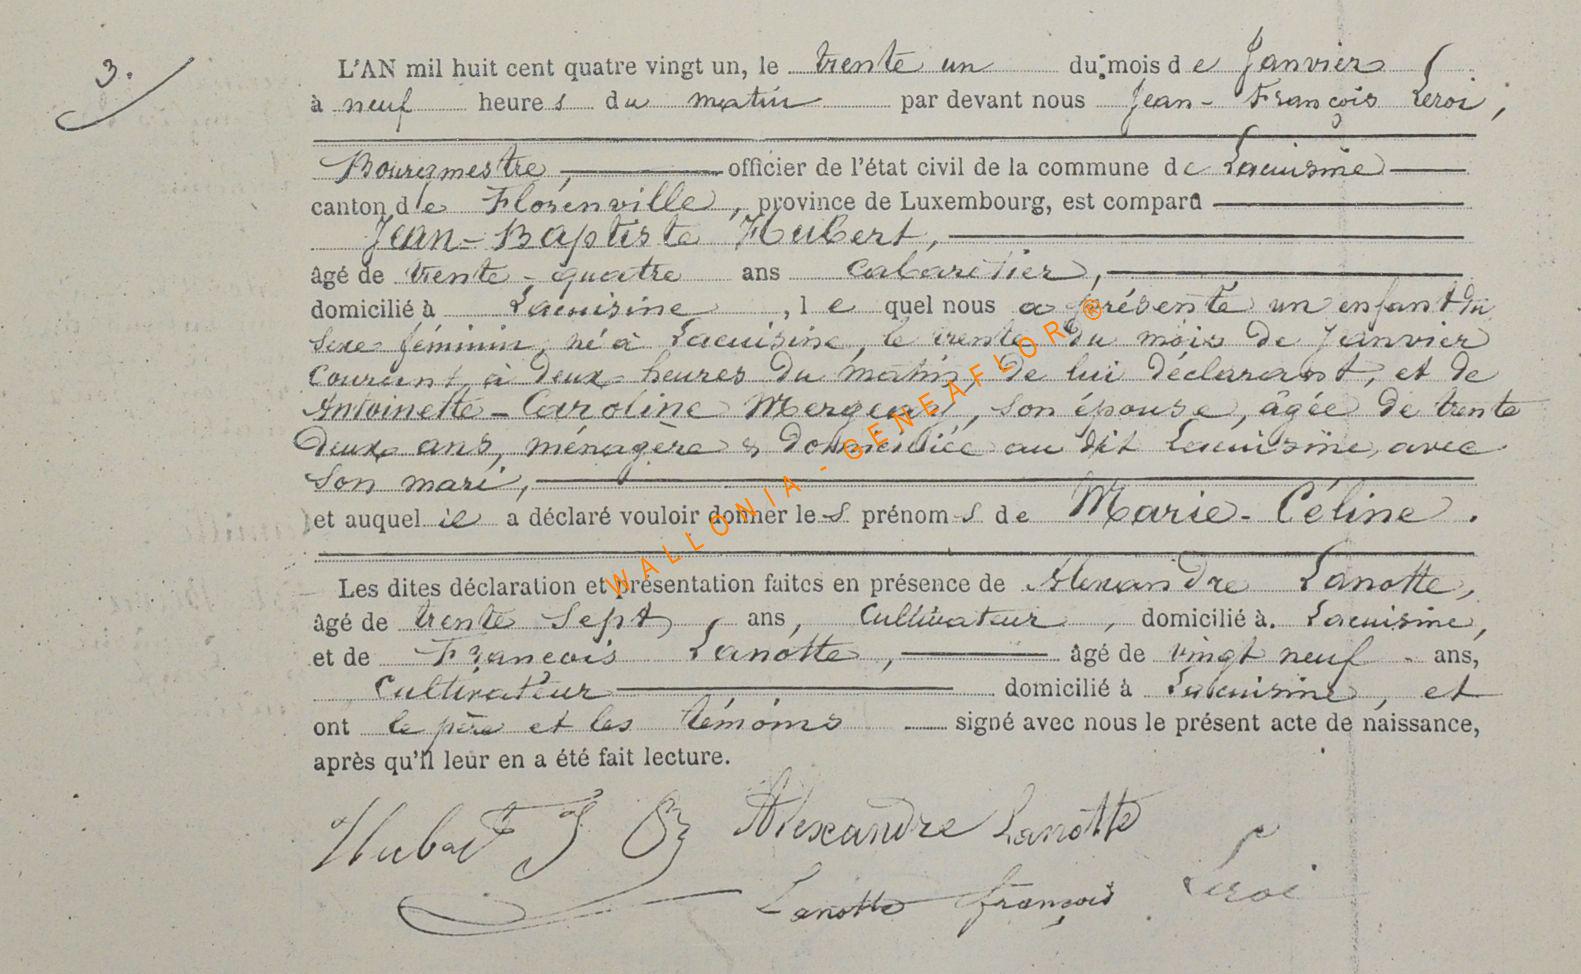 3.
L'AN mil huit cent quatre vingt un, le trente un du mois de Janvier
à neuf heures du matin par devant nous Jean-François Leroi,
Bourgmestre, officier de l'état civil de la commune de Lacuisine
canton de Florenville, province de Luxembourg, est comparu
Jean-Baptiste Hubert,
âgé de trente-quatre ans cabaretier,
domicilié à Lacuisine, le quel nous a présenté un enfant du
sexe féminin, né à Lacuisine, le trente du mois de Janvier
courant, à deux heures du matin, de lui déclarant, et de
Antoinette-Caroline son épouse, âgée de trente
deux ans, ménagère & domiciliée au dit Lacuisine, avec
son mari,
et auquel il a déclaré vouloir donner les prénoms de Marie-Céline.
Les dites déclaration et présentation faites en présence de Alexandre Lanotte,
âgé de trente sept ans, Cultivateur, domicilié à Lacuisine,
et de François Lanotte, âgé de vingt neuf ans,
Cultivateur domicilié à Lacuisine, et
ont le père et les témoins signé avec nous le présent acte de naissance,
après qu'il leur en a été fait lecture.
Hubert J B Alexandre Lanotte
Lanotte françois Leroi
WALLONIA - GENEAFLOR ©